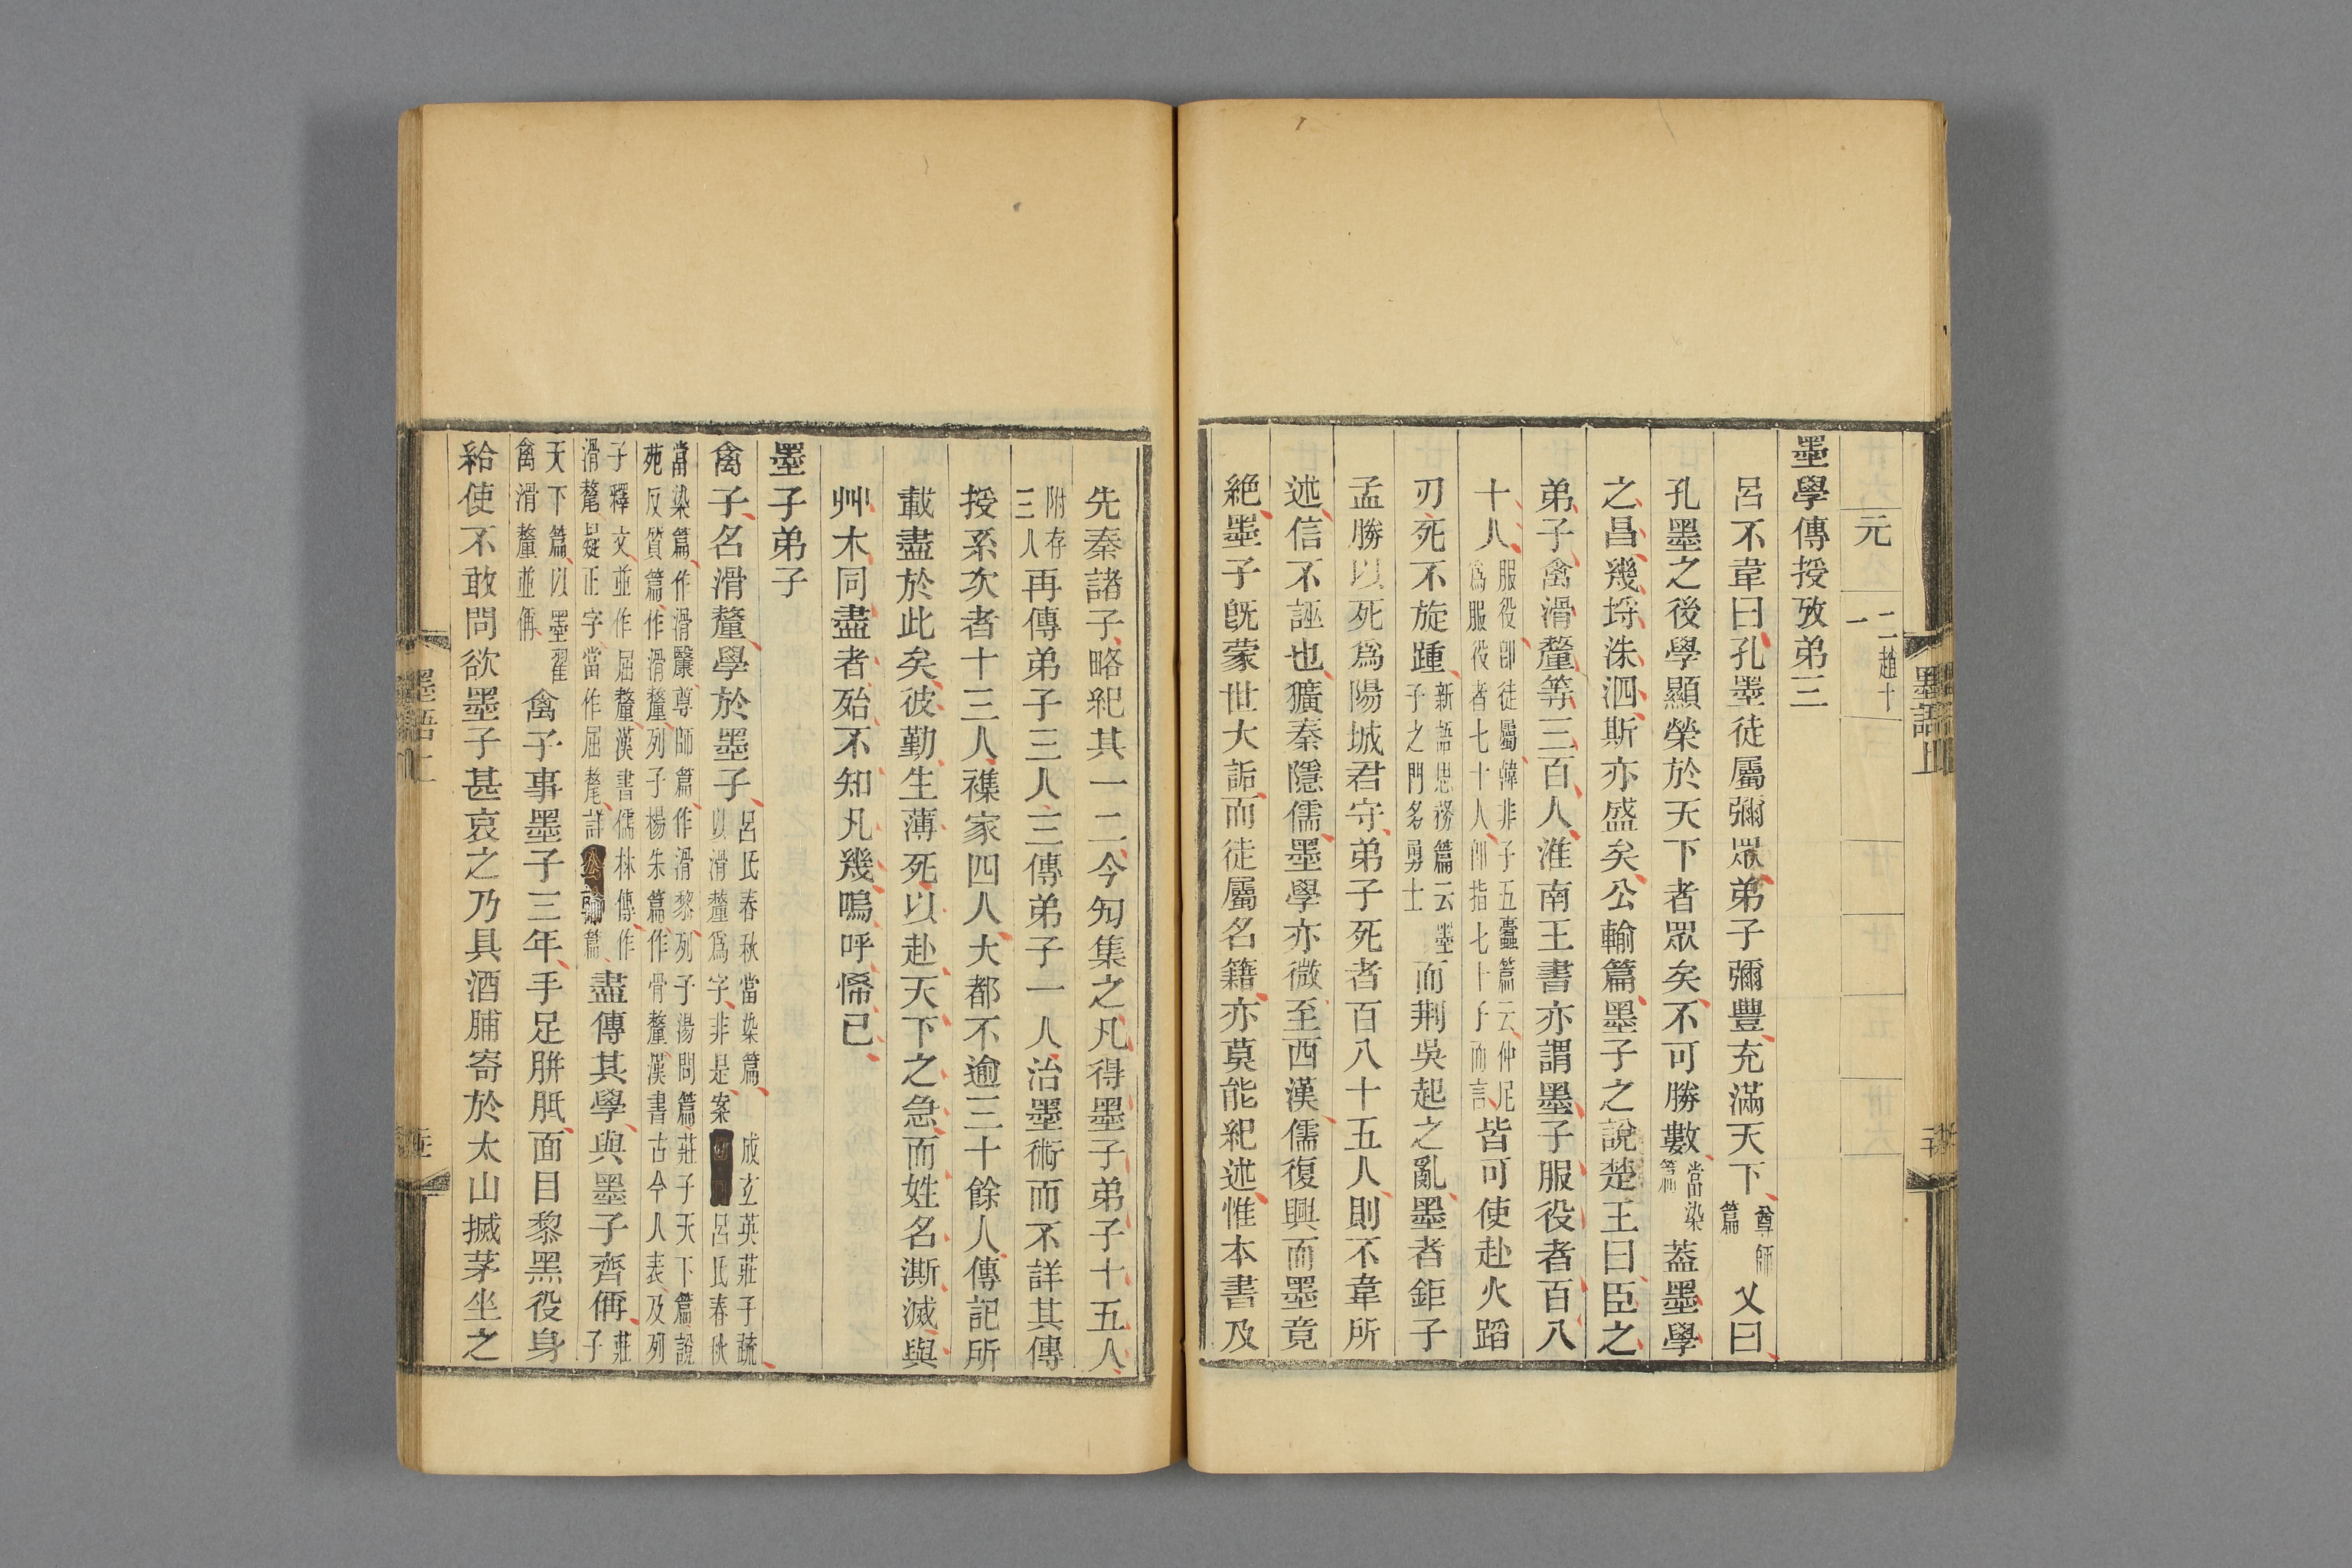 元
二趙十
一
墨學傳授攷弟三
呂不韋曰孔墨徒屬彌眾弟子彌豐充滿天下尊師篇又曰
孔墨之後學顯榮於天下者眾矣不可勝數當染篇葢墨學
之昌幾埒洙泗斯亦盛矣公輸篇墨子之說楚王曰臣之
弟子禽滑釐等三百人淮南王書亦謂墨子服役者百八
十人服役卽徒屬韓非子五蠹篇云仲尼爲服役者七十人卽指七十子而言皆可使赴火蹈
刃死不旋踵新語思務篇云墨子之門多勇士而荆吳起之亂墨者鉅子
孟勝以死爲陽城君守弟子死者百八十五人則不韋所
述信不誣也獷秦隱儒墨學亦微至西漢儒復興而墨竟
絕墨子旣蒙世大詬而徒屬名籍亦莫能紀述惟本書及
墨語上
先秦諸子略紀其一二今勼集之凡得墨子弟子十五人
附存三人再傳弟子三人三傳弟子一人治墨術而不詳其傳
授系次者十三人襍家四人大都不逾三十餘人傳記所
載盡於此矣彼勤生薄死以赴天下之急而姓名澌滅與
艸木同盡者殆不知凡幾嗚呼悕已
墨子弟子
禽子名滑釐學於墨子呂氏春秋當染篇以滑釐爲字非是案成玄英莊子疏呂氏春秋
當染篇作滑䵣尊師篇作滑黎列子湯問篇莊子天下篇說苑反質篇作滑釐列子楊朱篇作骨釐漢書古今人表及列
子釋文並作屈釐漢書儒林傳作滑氂疑正字當作屈氂詳公輸篇盡傳其學與墨子齊偁莊子
天下篇以墨翟禽滑釐並偁禽子事墨子三年手足胼胝面目黎黑役身
給使不敢問欲墨子甚哀之乃具酒脯寄於太山搣茅坐之
墨語上